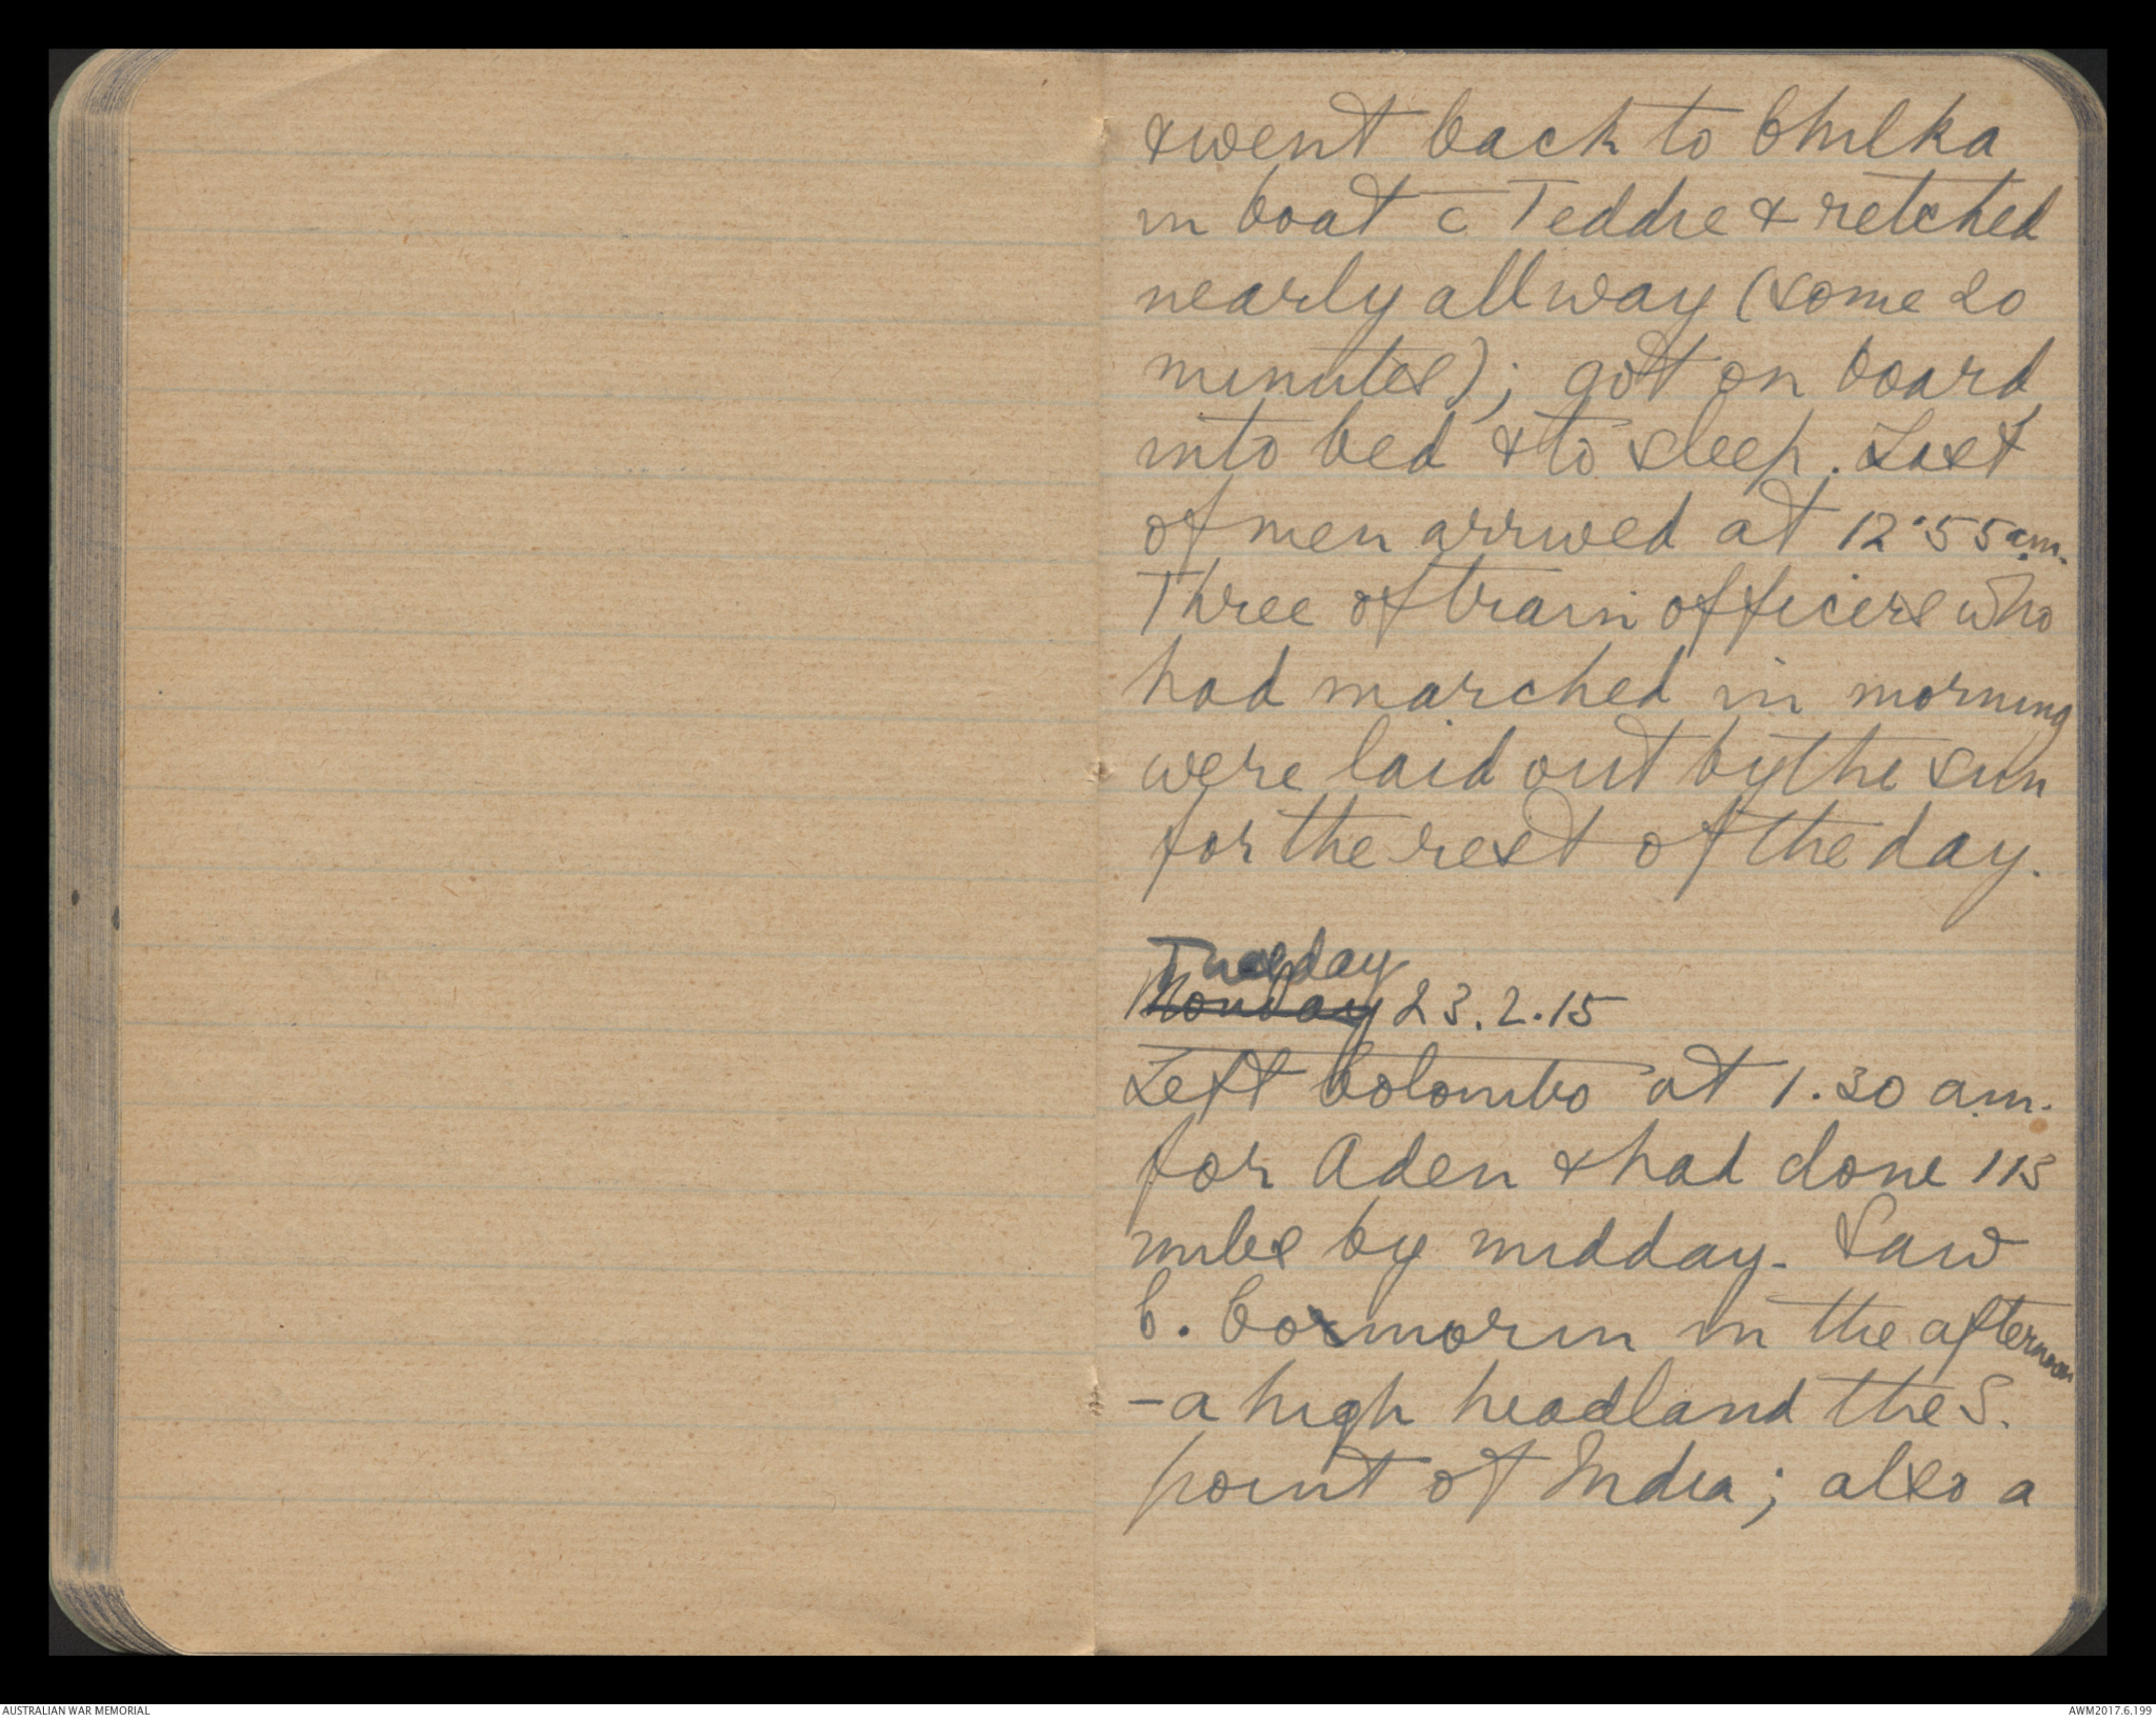 & went back to Chilka
in boat c̄ Teddie & retched
nearly all way (some 20
minutes); got on board,
into bed & to sleep. Last
of men arrived at 12.55 a.m.
Three of train officers who
had marched in morning
were laid out by the sun
for the rest of the day.
Tuesday
Monday 23.2.15
Left Colombo at 1.30 a.m.
for Aden & had done 115
miles by midday. Saw
C. Cormorin in the afternoon
- a high headland the S.
point of India; also a
AUSTRALIAN WAR MEMORIAL
AWM2017.6.199